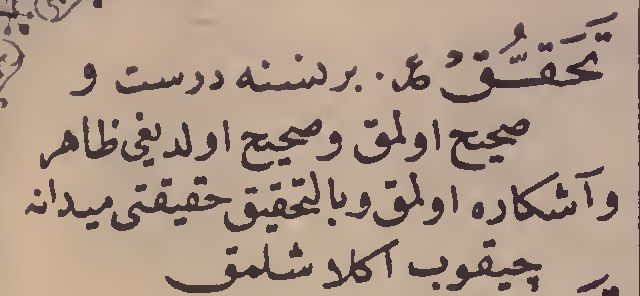 تَحَقُّقْ ع. برنسنه درست و
صحیح اولمق وصحیح اولدیغی ظاهر
وآشکاره اولمق وبالتحقیق حقیقتی میدانه
چیقوب اکلاشلمق